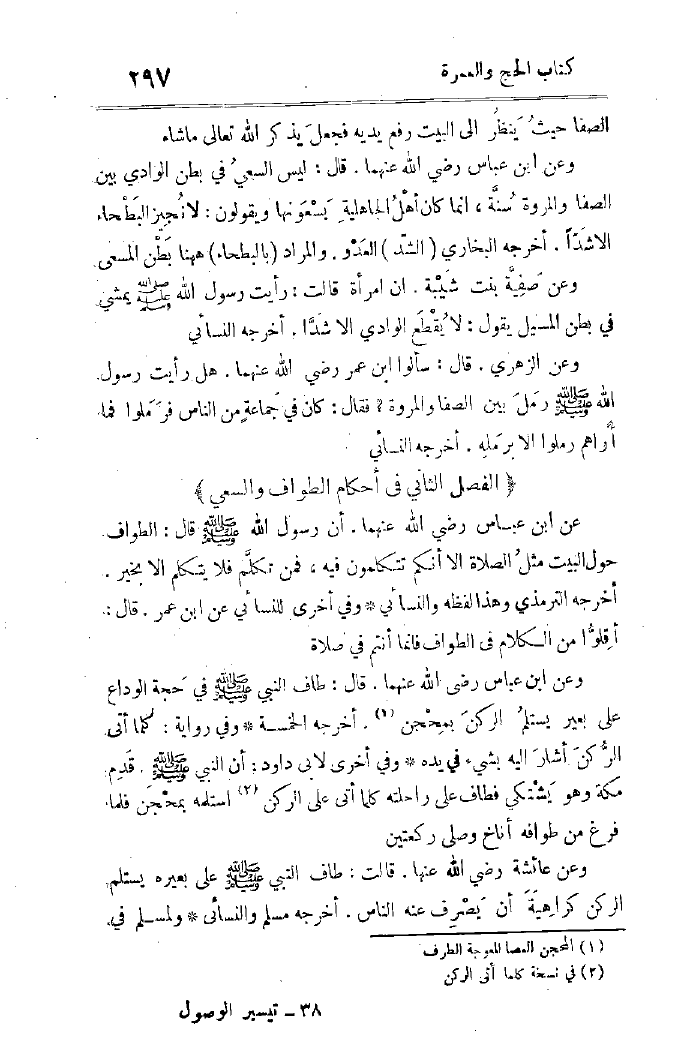 كتاب الحج والعمرة ٢٩٧
الصفا حيثُ يَنظُر الى البيت رفع يديه فجعلَ يَذكر الله تعالى ماشاء
وعن ابن عباس رضي الله عنهما . قال : ليس السعيُ في بطن الوادي بين
الصفا والمروة سُنةً ، انما كان أهلُ الجاهلية يَسعَونها ويقولون : لا نُجيز البَطْحاء
الا شدّاً . أخرجه البخاري ( الشَّد ) العَدْو . والمراد ( بالبطحاء ) ههنا بَطْن المسعى
وعن صَفِيَّة بنت شَيْبة . ان امرأة قالت : رأيت رسول الله ﷺ يمشي
في بطن المسيل يقول : لا يُقْطَع الوادي الا شدًّا . أخرجه النسائي
وعن الزهري . قال : سألوا ابن عمر رضي الله عنهما . هل رأيت رسول
الله ﷺ رَمَلَ بين الصفا والمروة ؟ فقال : كان في جَماعةٍ من الناس فرَمَلوا فما
أُراهم رملوا الا برَمَلِه . أخرجه النسائي
﴿ الفصل الثاني فى أحكام الطواف والسعي ﴾
عن ابن عباس رضي الله عنهما . أن رسول الله ﷺ قال : الطواف
حول البيت مثلُ الصلاة الا أنكم تتكلمون فيه ، فمن تكلَّم فلا يتكلم الا بخير .
أخرجه الترمذي وهذا لفظه والنسائي * وفي أخرى للنسائي عن ابن عمر . قال :
أقِلوُّا من الكلام فى الطواف فانما أنتم في صلاة
وعن ابن عباس رضي الله عنهما . قال : طاف النبي ﷺ في حَجة الوداع
على بعير يستلمُ الركنَ بِمِحْجن (١) . أخرجه الخمسة * وفي رواية : كلما أتى
الرُّكنَ أشارَ اليه بشيء في يده * وفي أخرى لابى داود : أن النبي ﷺ . قَدِم
مكة وهو يَشْتكي فطاف على راحلته كلما أتى على الركن (٢) استلمه بمحْجَن فلما
فرغ من طوافه أناخ وصلى ركعتين
وعن عائشة رضي الله عنها . قالت : طاف النبي ﷺ على بعيره يستلم
الركن كراهيةَ أن يَصْرِف عنه الناس . أخرجه مسلم والنسائى * ولمسلم في
(١) المحجن العصا المعوجة الطرف
(٢) في نسخة كلما أتى الركن
٣٨ – تيسير الوصول